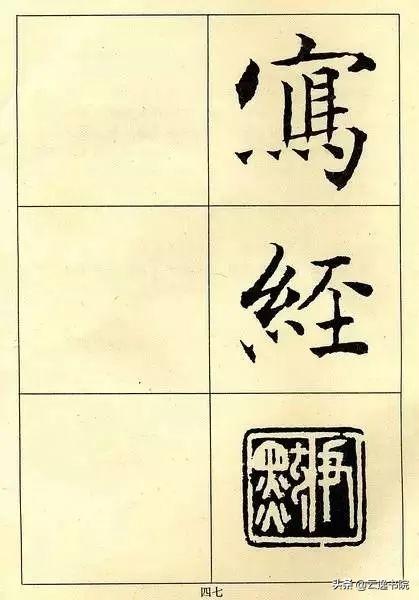 寫
經
四七
头条@云逸书院